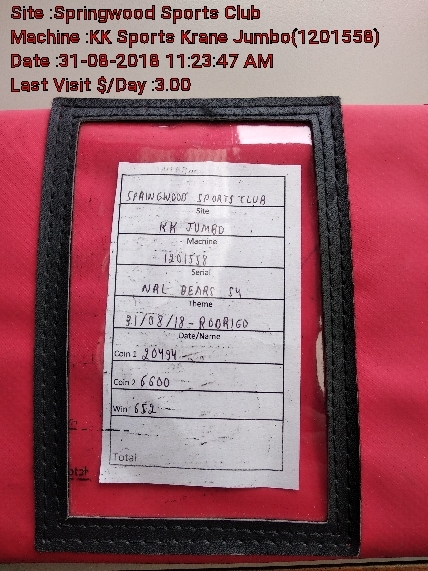 Site :Springwood Sports Club
Machine :KK Sports Krane Jumbo(1201558)
Date :31-08-2018 11:23:47 AM
Last Visit $/Day :3.00
SPRINGWOOD SPORTS CLUB
Site
KK JUMBO
Machine
1201558
Serial
NRL BEARS S4
Theme
31/08/18 - RODRIGO
Date/Name
Coin 1 20494
Coin 2 6600
Win 652
Total